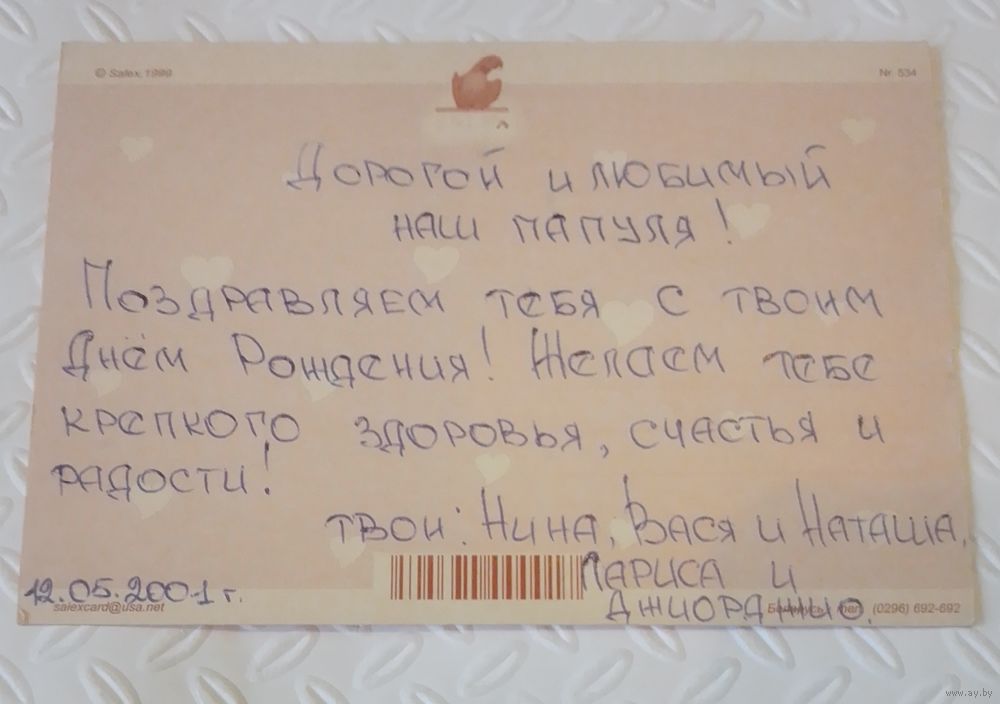 © Salex, 1999
Nr. 534
Дорогой и любимый
наш папуля!
Поздравляем тебя с твоим
Днём Рождения! Желаем тебе
крепкого здоровья, счастья и
радости!
твои: Нина, Вася и Наташа,
Лариса и
Джиорджио.
12.05.2001 г.
salexcard@usa.net
(0296) 692-692
www.ay.by